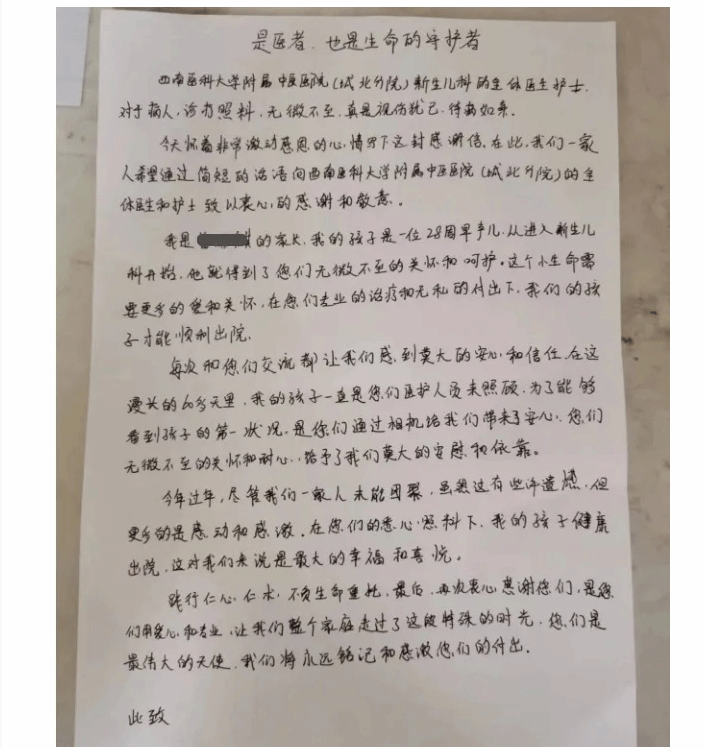 是医者、也是生命的守护者
西南医科大学附属中医医院(城北分院)新生儿科的全体医生护士.
对于病人,诊疗照料,无微不至,真是视伤犹己,待病如亲。
今天怀着非常激动感恩的心,情写下这封感谢信,在此,我们一家
人希望通过简短的话语向西南医科大学附属中医医院(城北分院)的全
体医生和护士致以衷心,的感谢和敬意。
我是 的家长,我的孩子是一位28周早产儿,从进入新生儿
科开始,他就得到了您们无微不至的关怀和呵护。这个小生命需
要更多的爱和关怀,在您们专业的治疗和无私的付出下,我们的孩
子才能顺利出院,
每次和您们交流都让我们感到莫大的安心,和信任,在这
漫长的60多天里,我的孩子一直是您们医护人员来照顾,为了能够
看到孩子的第一状况,是您们通过相机给我们带来了安心,您们
无微不至的关怀和耐心,给予了我们莫大的安慰和依靠。
今年过年,尽管我们一家人未能团聚,虽然这有些许遗憾,但
更多的是感动和感激,在您们的悉心照料下,我的孩子健康
出院,这对我们来说是最大的幸福和喜悦。
践行仁心,仁术,不负生命重托,最后,再次衷心,感谢您们,是您
们用爱心,和专业,让我们整个家庭走过了这段特殊的时光,您们是
最伟大的天使,我们将永远铭记和感激您们的付出。
此致